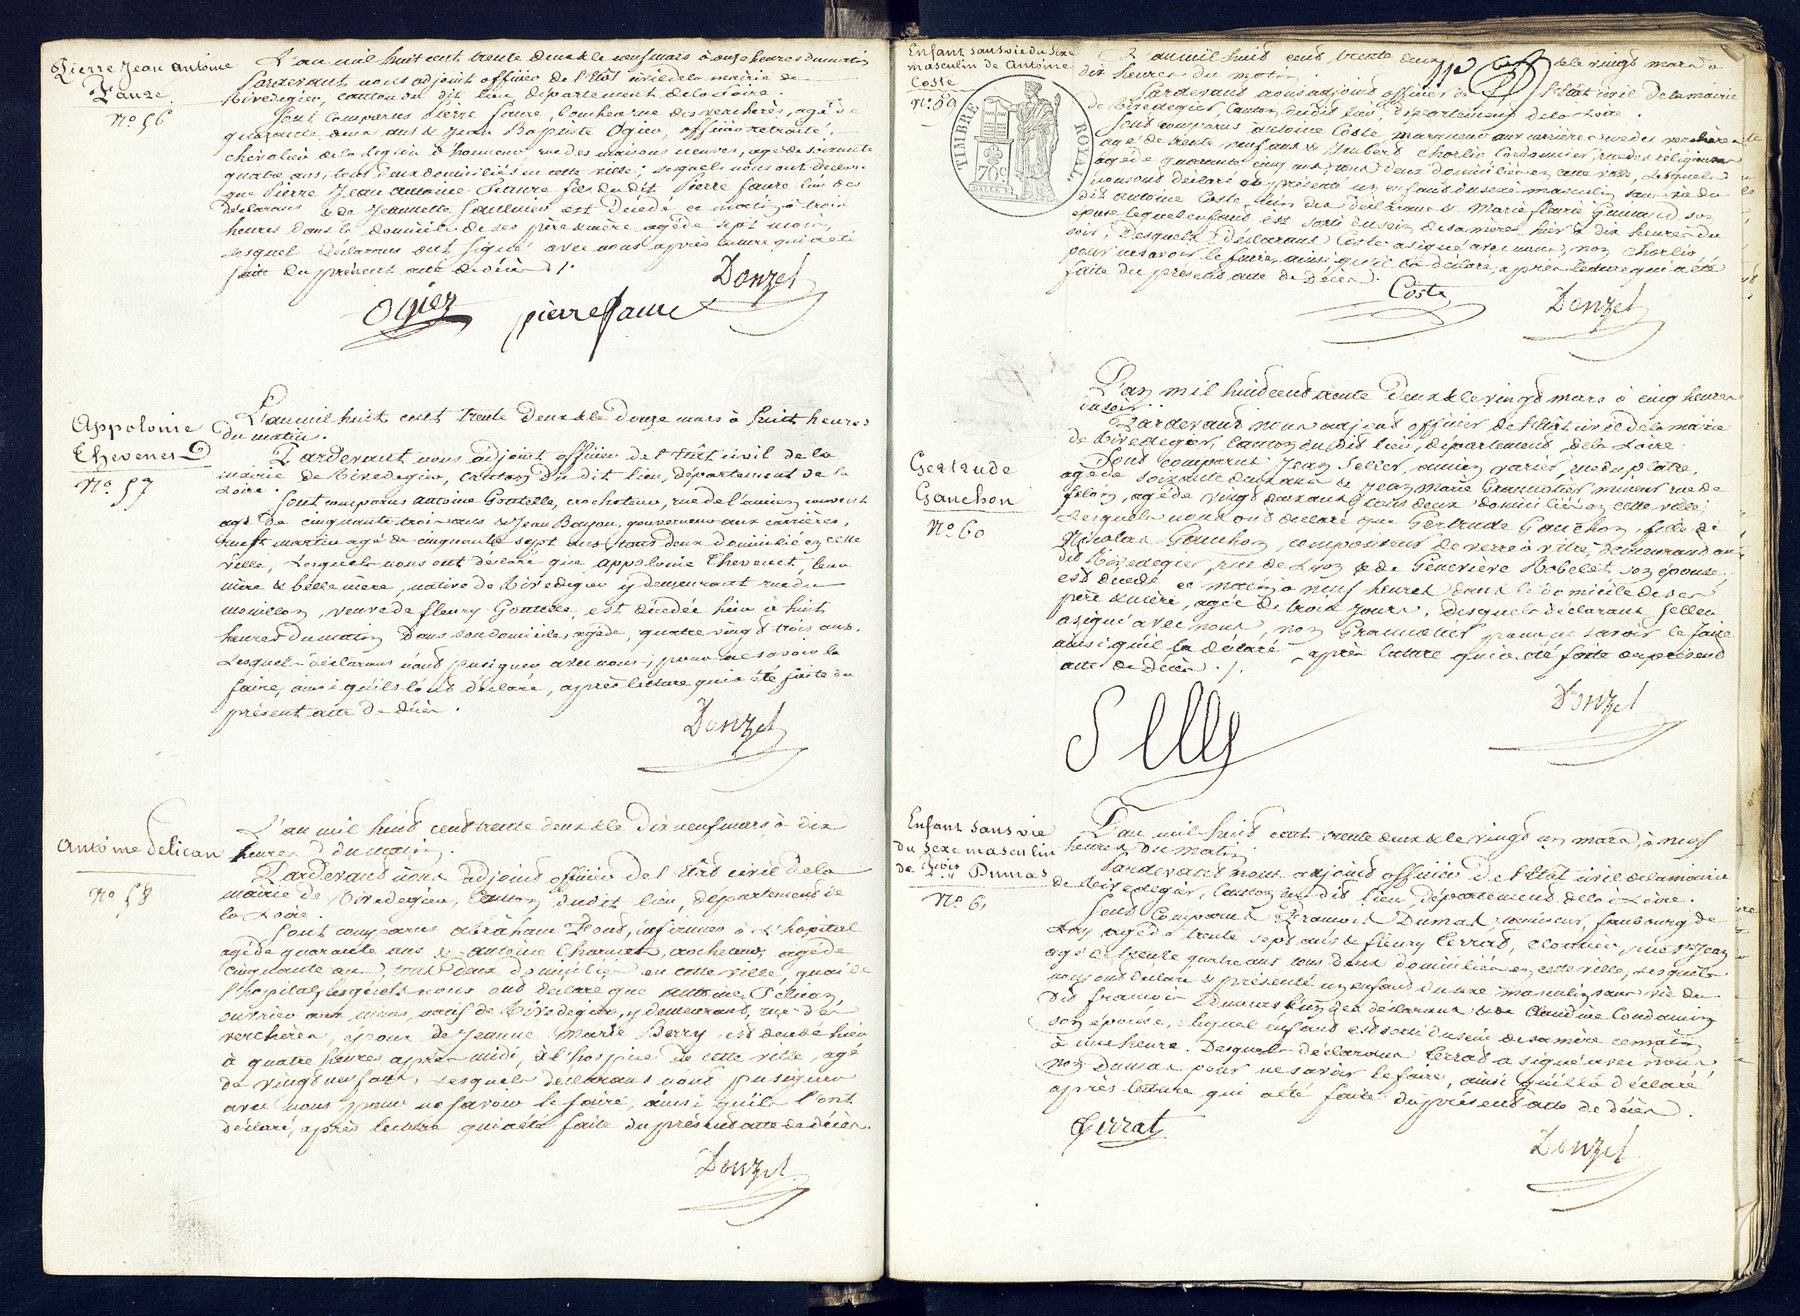 Pierre Jean Antoine
Faure
N° 56
L'an mil huit cent trente deux & le neuf mars à onze heures du matin
Pardevant nous adjoint officier de l'Etat civil de la mairie de
Rivedegier, canton du dit lieu département de la Loire.
Sont comparus Pierre Faure, rue des verchères, agé de
quarante deux ans & Jean Baptiste Ogier, officier retraité,
chevalier de la légion d'honneur, rue des maisons neuves, agé de soixante
quatre ans, tous deux domiciliés en cette ville, lesquels nous ont déclaré
que Pierre Jean Antoine Faure fils du dit Pierre Faure l'un des
déclarans & de Jeannette Saulnier est décédé ce matin à trois
heures dans le domicile de ses père & mère agé de sept mois,
lesquels déclarans ont signé avec nous après lecture qui a été
faite du présent acte de décès ./.
Ogier pierre faure Donzel
Appolonie
Thevenet
N° 57
L'an mil huit cent trente deux & le douze mars à huit heures
du matin.
Pardevant nous adjoint officier de l'Etat civil de la
mairie de Rivedegier, canton du dit lieu, département de la
Loire.
Sont comparus Antoine Gontelle, crocheteur, rue de l'ancien couvent
agé de cinquante trois ans & Jean Bayon, gouverneur aux carrières,
rue St martin agé de cinquante sept ans, tous deux domiciliés en cette
ville, lesquels nous ont déclaré que appolonie Thevenet, leur
mère & belle mère, native de Rivedegier y demeurant rue du
mouillon, veuve de fleury Gontelle, est décédée hier à huit
heures du matin dans son domicile, agée de quatre vingt trois ans.
Lesquels déclarans n'ont pu signer avec nous, pour ne savoir le
faire, ainsi qu'ils l'ont déclaré, après lecture qui a été faite du
présent acte de décès.
Donzel
Antoine Pelican
N° 58
L'an mil huit cent trente deux & le dix neuf mars à dix
heures du matin.
Pardevant nous adjoint officier de l'Etat civil de la
mairie de Rivedegier, canton du dit lieu, département de
la Loire.
Sont comparus abraham Fond, infirmier à l'hopital
agé de quarante ans & antoine Charvet, crocheteur, agé de
cinquante ans, tous deux domiciliés en cette ville, quai de
l'hopital, lesquels nous ont déclaré que antoine Pelican,
ouvrier aux mines, natif de Rivedegier, y demeurant, rue des
verchères, époux de Jeanne Marie Berry est décédé hier
à quatre heures après midi, à l'hospice de cette ville, agé
de vingt neuf ans, lesquels déclarans n'ont pu signer
avec nous pour ne savoir le faire, ainsi qu'ils l'ont
déclaré, après lecture qui a été faite du présent acte de décès.
Donzel
Enfant sans vie du sexe
masculin de Antoine
Coste
N° 59
TIMBRE ROYAL
70c
L'an mil huit cent trente deux & le vingt mars à
dix heures du matin.
Pardevant nous adjoint officier de l'Etat civil de la mairie
de Rivedegier, canton du dit lieu, département de la Loire.
Sont comparus antoine Coste, marqueur aux carrières, rue des verchères
agé de trente neuf ans & Imbert Chorlié, cordonnier, rue des religieuses
agé de quarante cinq ans, tous deux domiciliés en cette ville, lesquels
nous ont déclaré & présenté un enfant du sexe masculin sans vie du
dit antoine Coste, l'un des déclarans & Marie fleurie son
épouse, lequel enfant est sorti du sein de sa mère hier à dix heures du
soir, Desquels déclarans Coste a signé avec nous, non Chorlié
pour ne savoir le faire, ainsi qu'il l'a déclaré, après lecture qui a été
faite du présent acte de décès.
Coste Donzel
Gertrude
Gauchon
N° 60
L'an mil huit cent trente deux & le vingt mars à cinq heures
du soir.
Pardevant nous adjoint officier de l'Etat civil de la mairie
de Rivedegier, canton du dit lieu, département de la Loire.
Sont comparus Jean Selles, ancien verrier, rue du plâtre,
agé de soixante deux ans & Jean Marie Grancolier mineur rue de
felon, agé de vingt deux ans, tous deux domiciliés en cette ville,
Lesquels nous ont déclaré que Gertrude Gauchon, fille de
Nicolas Gauchon, compositeur de verre à vitre, demeurant au
dit Rivedegier, rue de Lyon & de Genevieve Robelet, son épouse,
est décédé ce matin à neuf heures dans le domicile de ses
père & mère, agée de trois jours. Desquels déclarans Selles
a signé avec nous, non Grancolier pour ne savoir le faire
ainsi qu'il l'a déclaré après lecture qui a été faite du présent
acte de décès ./.
Selles Donzel
Enfant sans vie
du sexe masculin
de fçois Dumas
N° 61
L'an mil huit cent trente deux & le vingt un mars, à neuf
heures du matin.
Pardevant nous adjoint officier de l'Etat civil de la mairie
de Rivedegier, canton du dit lieu, département de la Loire.
Sont comparus François Dumas, faubourg de
agé de trente sept ans & fleury Terrat, cloutier, rue St Jean
agé de trente quatre ans tous deux domiciliés en cette ville, lesquels
nous ont déclaré & présenté un enfant du sexe masculin sans vie du
dit françois Dumas l'un des déclarans & de Claudine Condamin
son épouse, lequel enfant est sorti du sein de sa mère ce matin
à une heure. Desquels déclarans Terrat a signé avec nous
non Dumas pour ne savoir le faire, ainsi qu'il l'a déclaré,
après lecture qui a été faite du présent acte de décès.
Terrat Donzel